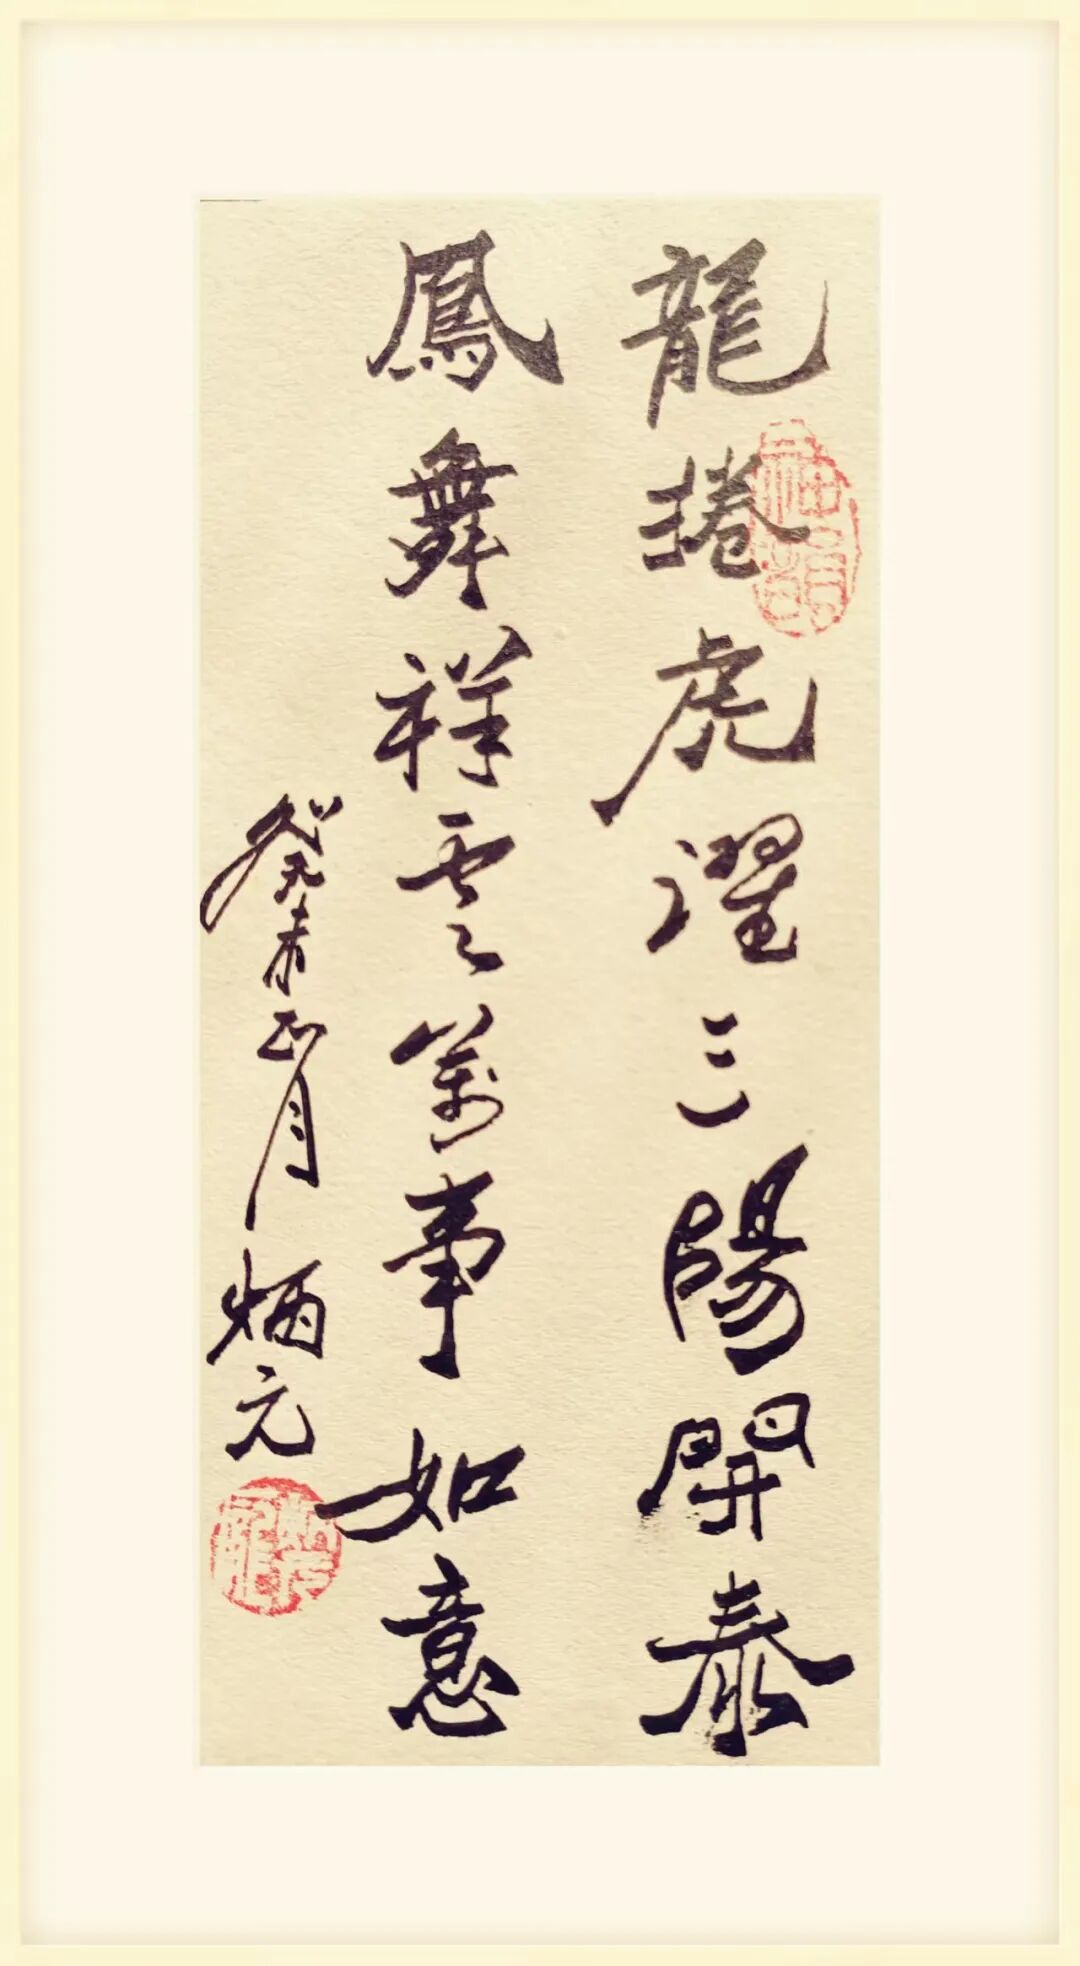 龍捲虎躍三陽開泰
鳳舞祥雲萬事如意
癸未正月炳元